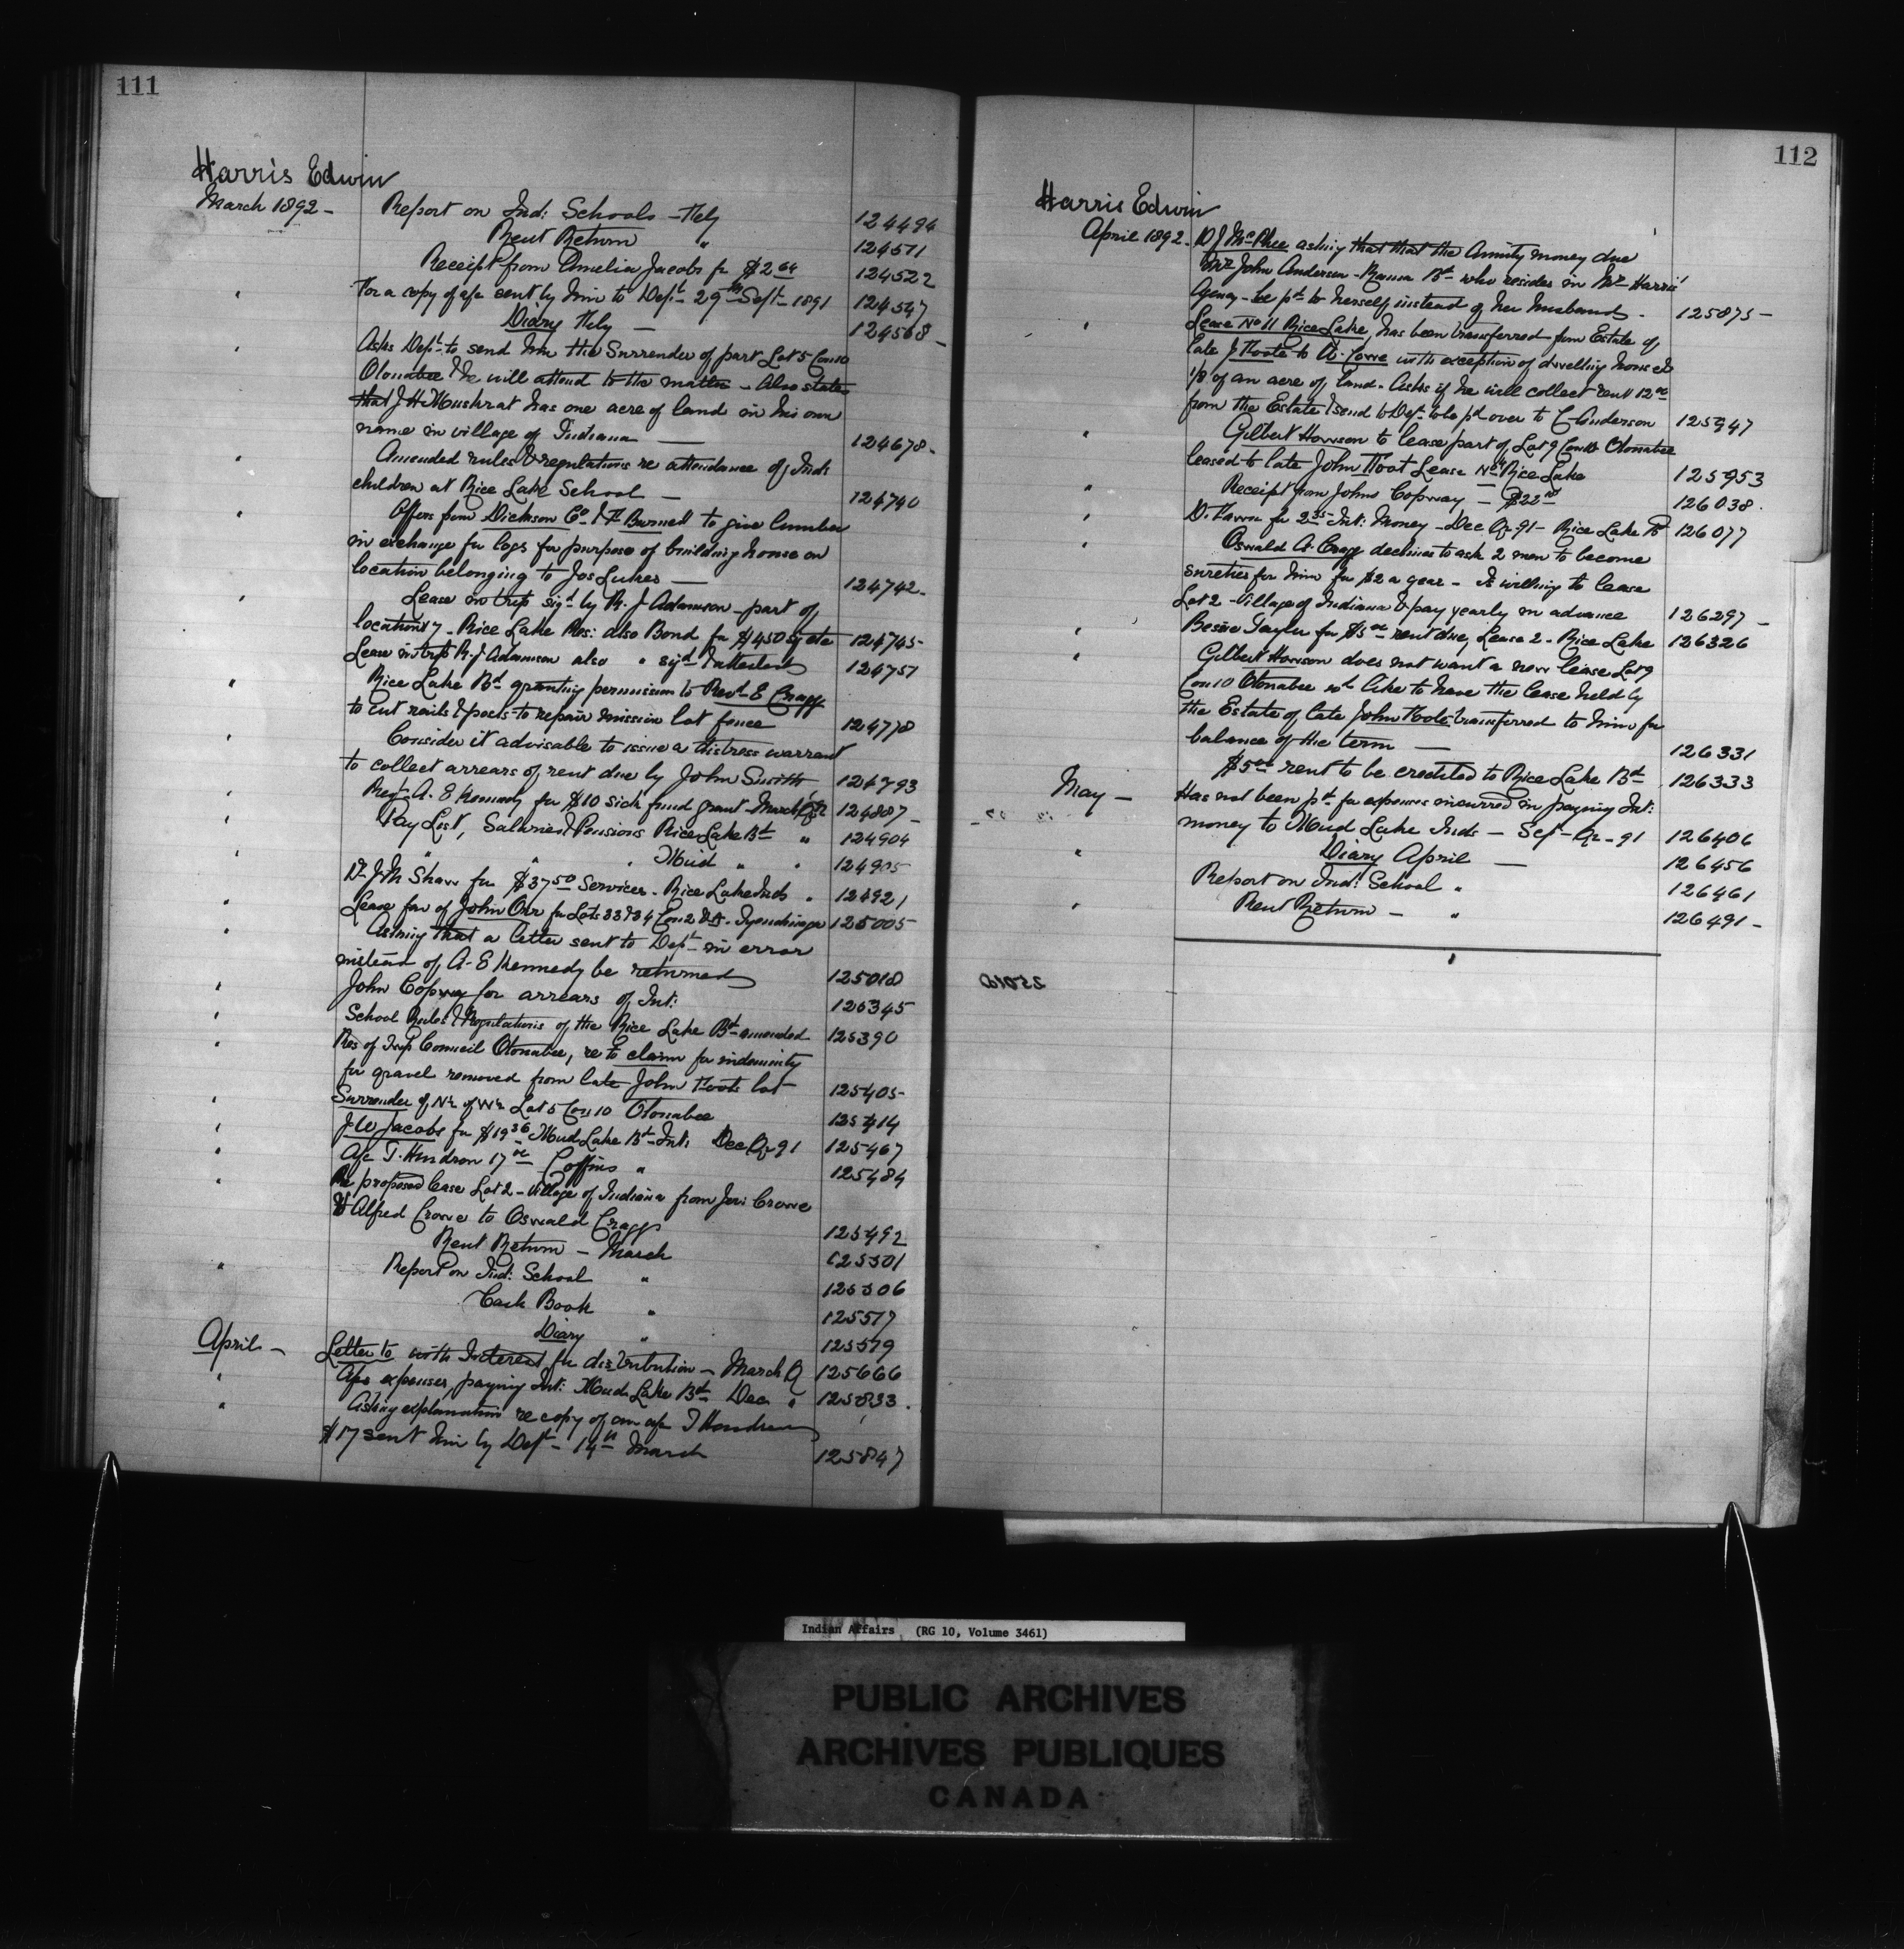 111
Harris Edwin
March 1892 - Report on Ind: Schools - Feby 124494
Rent Return " 124511
Receipt from Amelia Jacobs for $2 64 124522
" For a copy of a/c sent by him to Dept 29th Sept 1891 124547
Diary Feby - 124568 -
" Asks Dept to send him the Surrender of part Lot 5 Con 10
Otonabee & he will attend to the matter - Also states
that J H Muskrat has one acre of land in his own
name in village of Indiana - 124678 -
" Amended rules & regulations re attendance of Inds
children at Rice Lake School - 124740
" Offers from Dickson Co & F Burnett to give lumber
in exchange for logs for purpose of building house on
location belonging to Jos Lukes - 124742 -
" Lease in trip sigd by R. J Adamson - part of
location 7 - Rice Lake Res: also Bond for $450 124745 -
Lease in trip R. J Adamson also " sigd 124751
" Rice Lake Bd granting permission to Revd E Cragg
to cut rails & posts to repair mission lot fence 124778
" Consider it advisable to issue a distress warrant
to collect arrears of rent due by John Smith 124793
" Revd A. E Kennedy for $10 sick fund grant March Qr 124887 -
" Pay List, Salaries & Pensions Rice Lake Bd " 124904
" " " " Mud " " 124905
" Dr J M Shaw for $37 50 Services - Rice Lake Inds " 124921
" Lease fav of John Orr for Lots 33 & 34 Con 2 Tyendinaga 125005
" Asking that a letter sent to Dept in error
instead of A. E Kennedy be returned 125018
" John Copway for arrears of Int: 125345
" School Rules & Regulations of the Rice Lake Bd amended 125390
" Res of Twp Council Otonabee, re to claim for indemnity
for gravel removed from late John Foote lot 125405
" Surrender of N½ of W½ Lot 5 Con 10 Otonabee 125414
" J W Jacobs for $19 36 Mud Lake Bd Int: Dec Qr 91 125467
" A/c T. Hendron 17 00 Coffins " 125484
" Re proposed lease Lot 2 - Village of Indiana from Crowe
& Alfred Crowe to Oswald Cragg 125492
Rent Return - March 125501
" Report on Ind: School " 125506
Cash Book " 125517
Diary " 125519
April - Letter to with Interest for distribution - March Q 125666
" A/c expenses paying Int: Mud Lake Bd Dec " 125833 .
" Asking explanation re copy of an a/c T Hendron
$17 sent him by Dept - 14th March 125847
112
Harris Edwin
April 1892 - D J McPhee asking that that the Annuity money due
Mrs John Anderson - Rama Bd who resides in Mr Harris'
Agency - be pd to herself instead of her husband - 125875 -
" Lease No 11 Rice Lake, has been transferred from Estate of
late J Foote to A. Cowe with exception of dwelling house &
1/8 of an acre of land - Asks if he will collect rent 12 00
from the Estate & send to Dept to be pd over to C Anderson 125947
" Gilbert Howson to lease part of Lot 9 Con 10 Otonabee
leased to late John Foot Lease No 11 Rice Lake 125953
" Receipt from John Copway - $22 126038 .
" for 2 35 Int: Money - Dec Qr 91 - Rice Lake Bd 126077
" Oswald A. Cragg declines to ask 2 men to become
sureties for him for $2 a year - Is willing to lease
Lot 2 - Village of Indiana & pay yearly in advance 126297 -
" Bessie Taylor for $5 00 rent due, Lease 2 - Rice Lake 126326
" Gilbert Howson does not want a new lease Lot 9
Con 10 Otonabee wd like to have the lease held by
the Estate of late John Foote transferred to him for
balance of the term - 126331
$5 00 rent to be credited to Rice Lake Bd 126333
May - Has not been pd for expenses incurred in paying Int:
money to Mud Lake Inds - Sep - Qr - 91 126406
" Diary April - 126456
Report on Ind: School " 126461
" Rent Return - " 126491 -
Indian Affairs (RG 10, Volume 3461)
PUBLIC ARCHIVES
ARCHIVES PUBLIQUES
CANADA